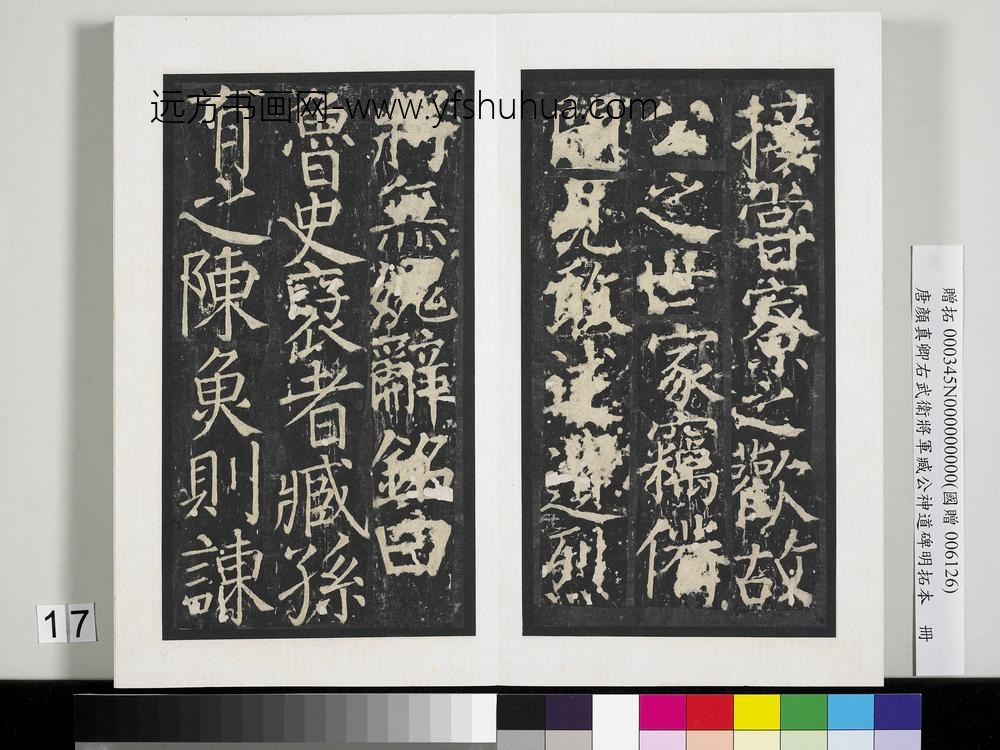 远方书画网-www.yfshuhua.com
接嘗寮之歡故
公之世家竊備
聞見敢述遺烈
將無愧辭銘曰
魯史襃者臧孫
有之陳魚則諫
贈拓 000345N000000000(國贈 006126)
唐顏真卿右武衛將軍臧公神道碑明拓本 冊
17